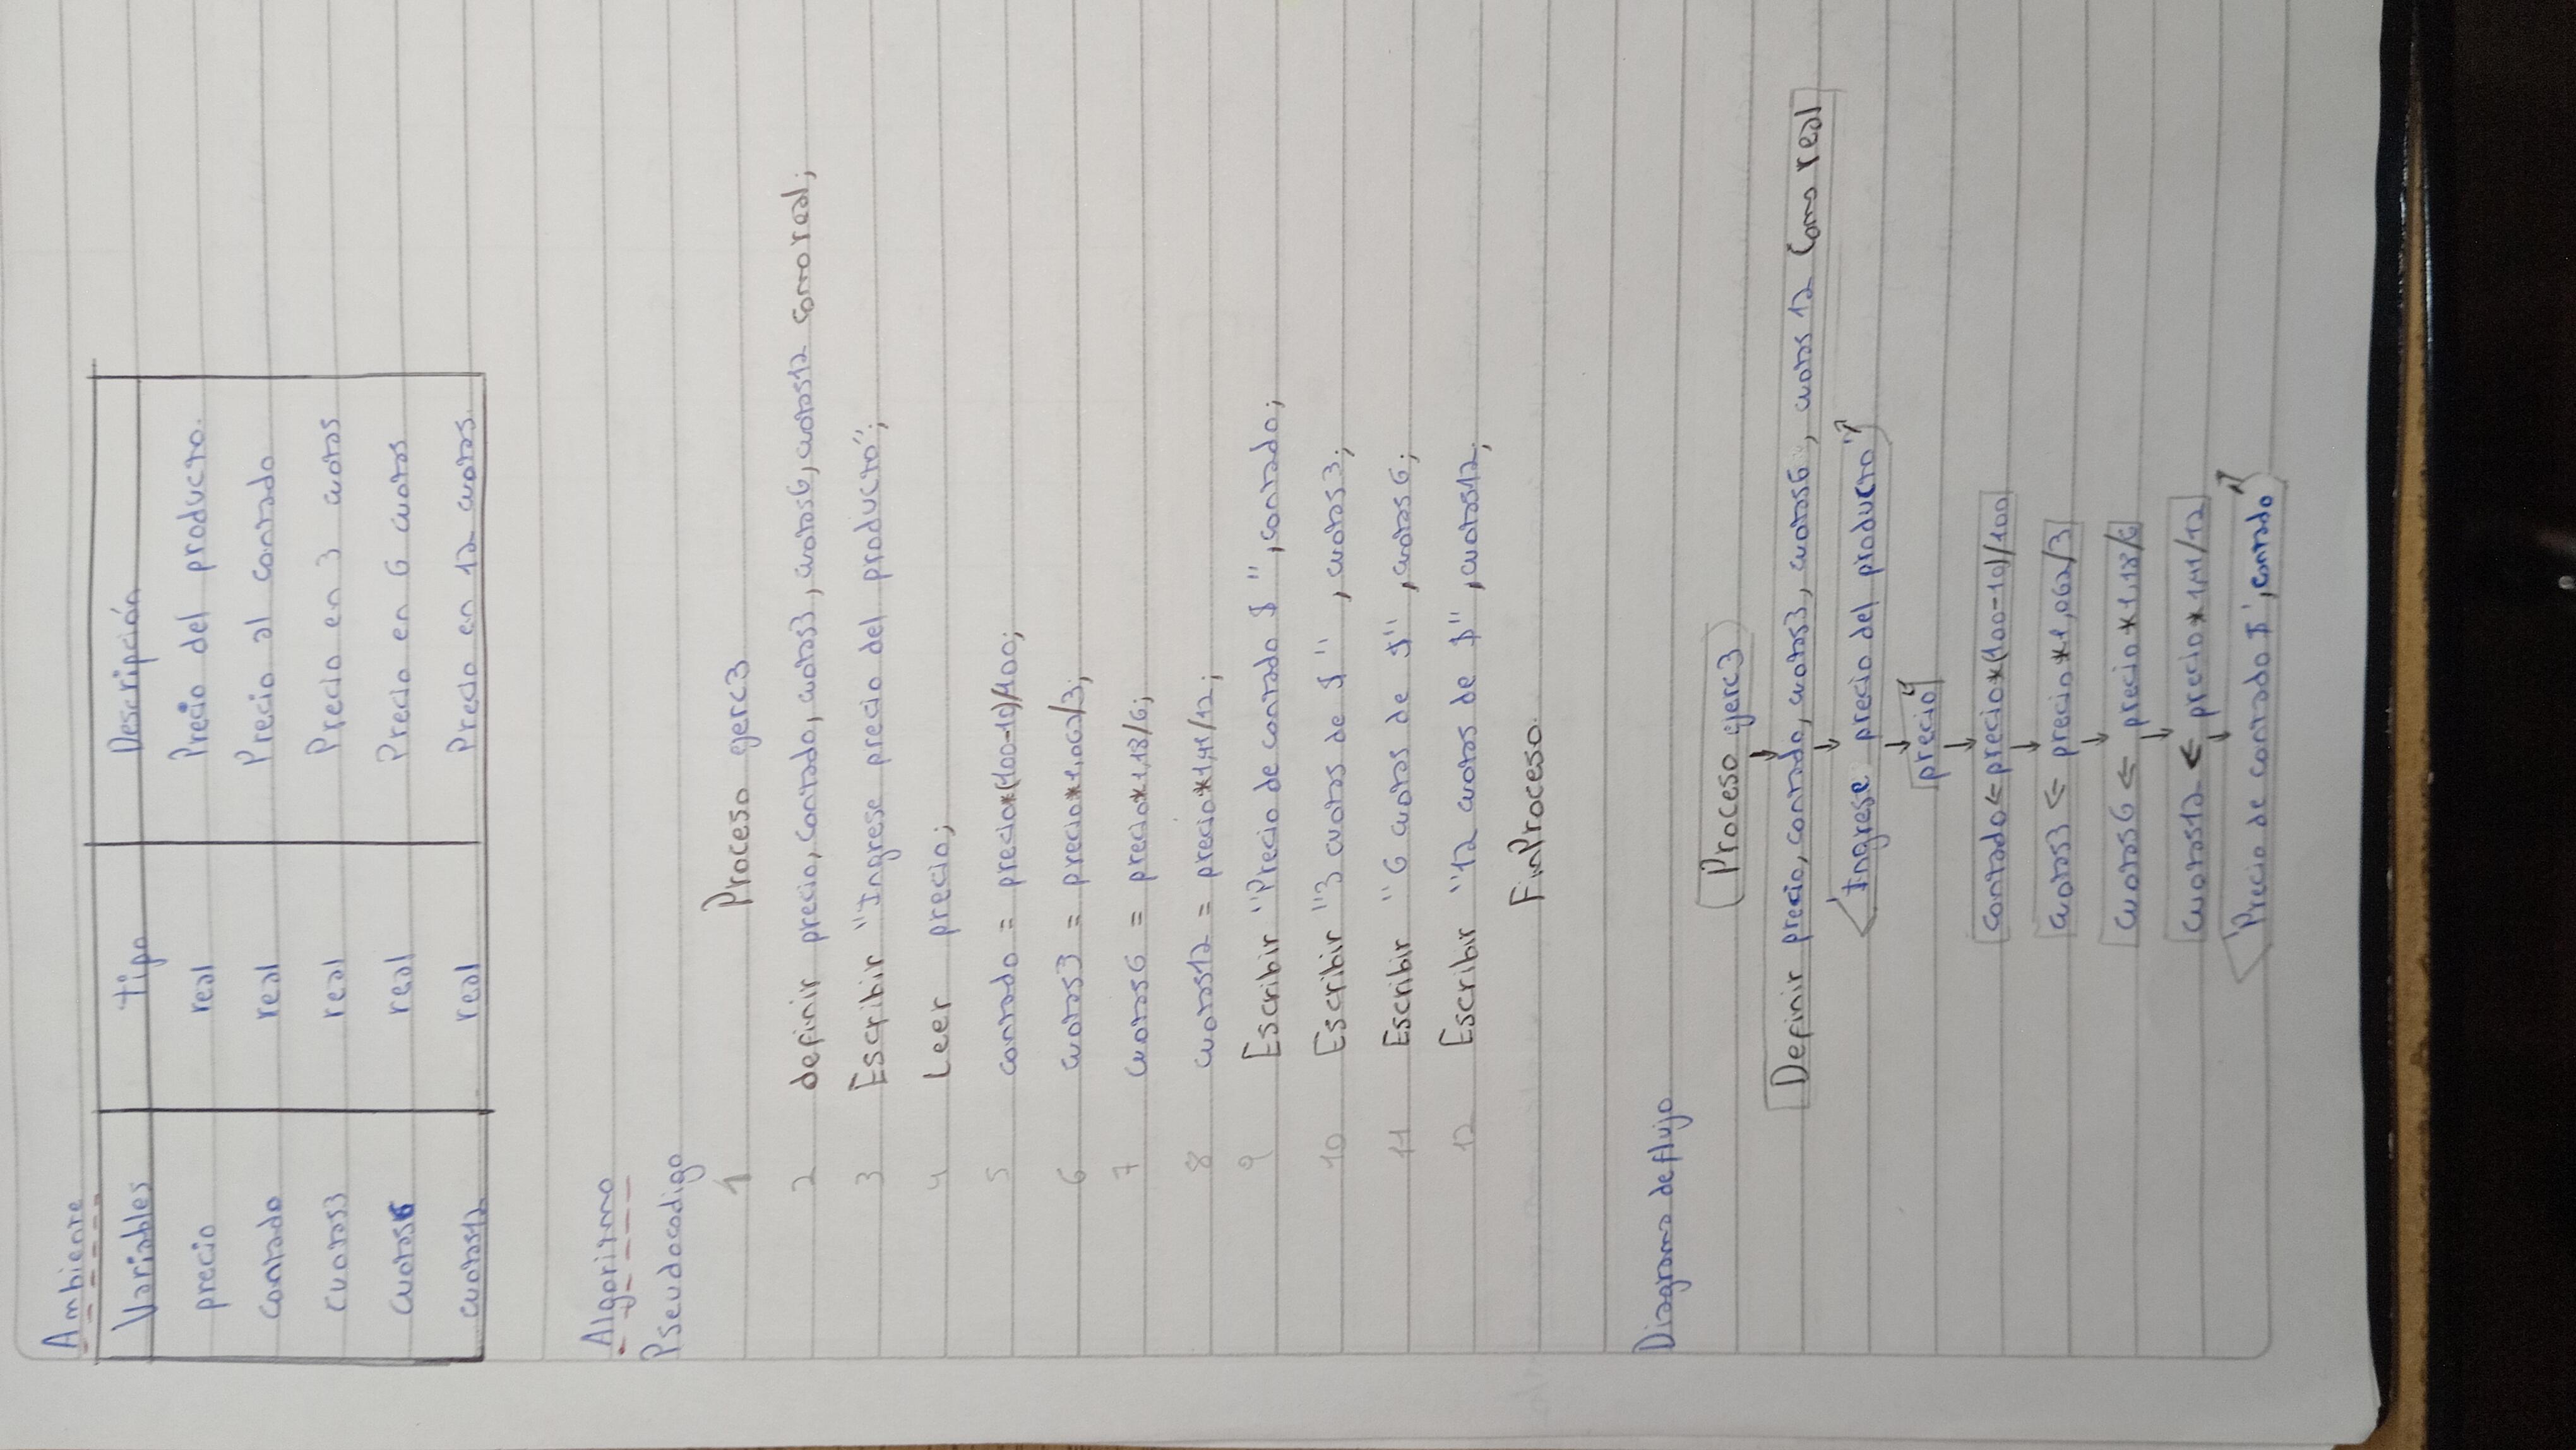 Ambiente
Variables tipo Descripción
precio real Precio del producto.
contado real Precio al contado
cuotas3 real Precio en 3 cuotas
cuotas6 real Precio en 6 cuotas
cuotas12 real Precio en 12 cuotas.
Algoritmo
Pseudocodigo
1 Proceso ejerc3
2 definir precio, contado, cuotas3, cuotas6, cuotas12 como real;
3 Escribir "Ingrese precio del producto";
4 Leer precio;
5 contado = precio*(100-10)/100;
6 cuotas3 = precio*1,062/3;
7 cuotas6 = precio*1,18/6;
8 cuotas12 = precio*1,41/12;
9 Escribir "Precio de contado $ ", contado;
10 Escribir "3 cuotas de $ ", cuotas3;
11 Escribir "6 cuotas de $", cuotas6;
12 Escribir "12 cuotas de $", cuotas12;
FinProceso.
Diagrama de flujo
Proceso ejerc3
Definir precio, contado, cuotas3, cuotas6, cuotas 12 Como real
'Ingrese precio del producto'
precio
contado ← precio*(100-10)/100
cuotas3 ← precio*1,062/3
cuotas6 ← precio*1,18/6
cuotas12 ← precio*1,41/12
'Precio de contado $', contado